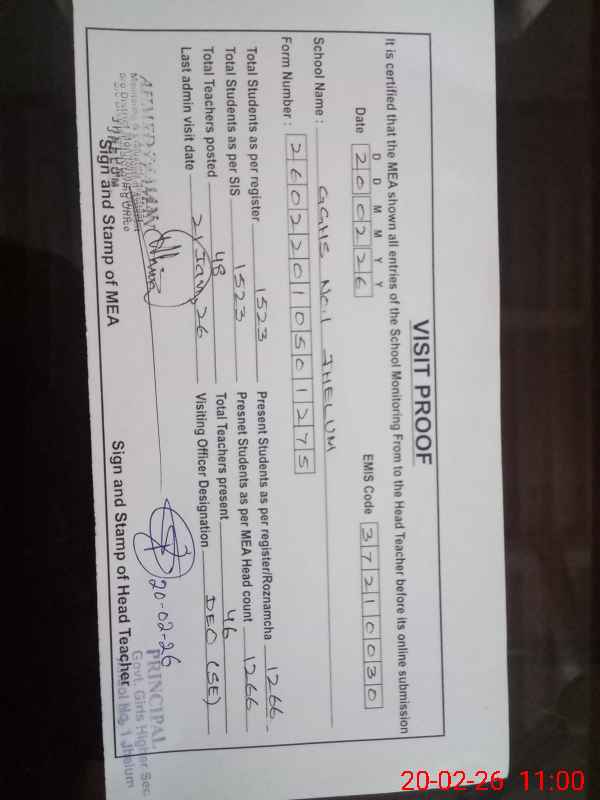 VISIT PROOF
It is certified that the MEA shown all entries of the School Monitoring From to the Head Teacher before its online submission
D D M M Y Y
Date 200226 EMIS Code 37210030
School Name : GGHS No.1 JHELUM
Form Number : 26022010501275
Total Students as per register 1523 Present Students as per register/Roznamcha 1266
Total Students as per SIS 1523 Presnet Students as per MEA Head count 1266
Total Teachers posted 48 Total Teachers present 46
Last admin visit date 21 Jan, 26 Visiting Officer Designation DEO (SE)
20-02-26
Sign and Stamp of MEA Sign and Stamp of Head Teacher
JHELUM
PRINCIPAL
Govt. Girls Higher Sec:
No. 1 Jhelum
20-02-26 11:00